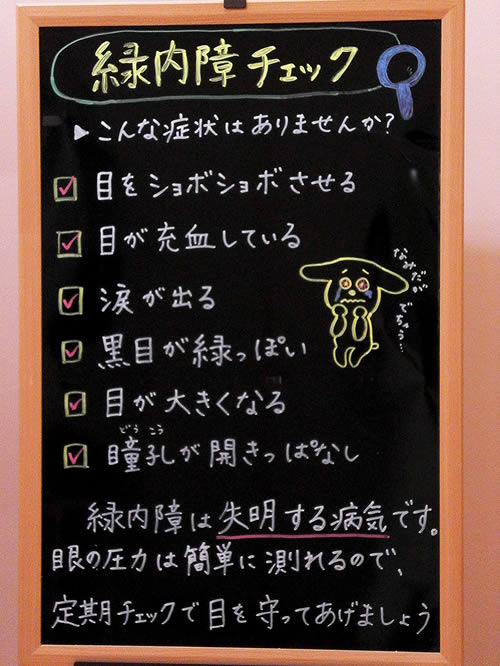 緑内障チェック
▶こんな症状はありませんか?
目をショボショボさせる
目が充血している
涙が出る
黒目が緑っぽい
目が大きくなる
どうこう
瞳孔が開きっぱなし
なみだが
でちゃう…
緑内障は失明する病気です。
眼の圧力は簡単に測れるので、
定期チェックで目を守ってあげましょう